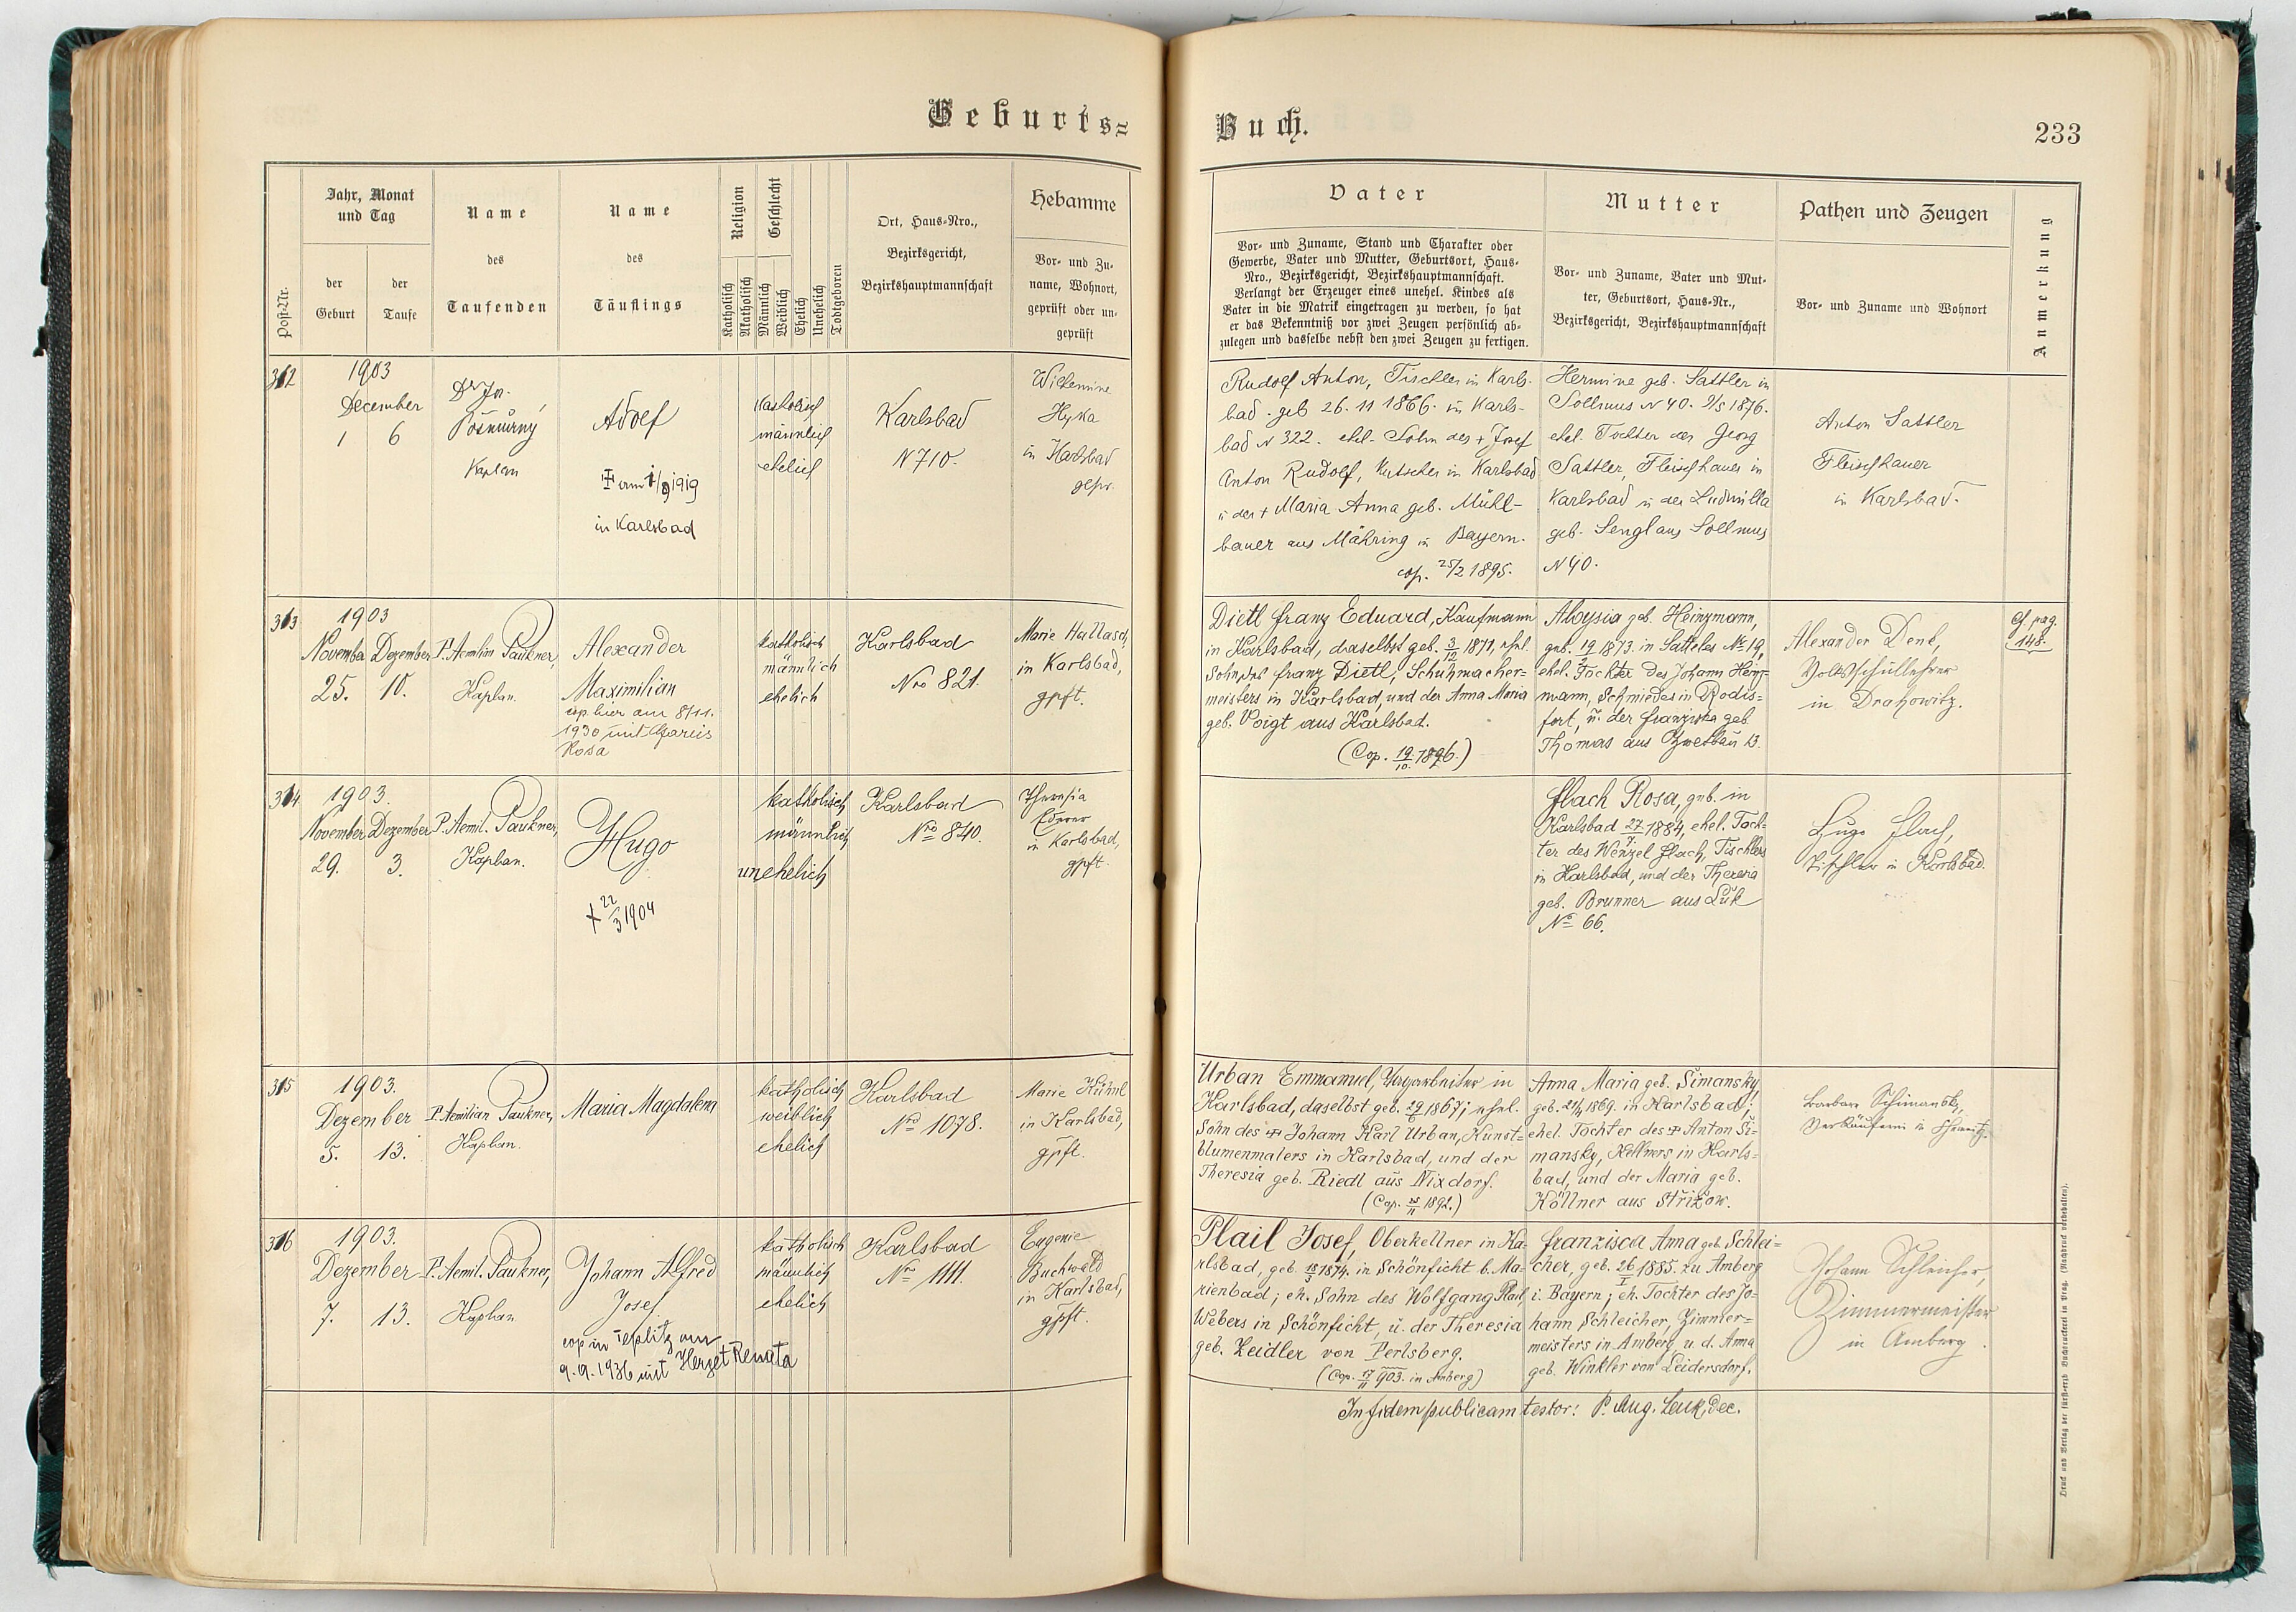 Geburts=
Buch.
233
Post-Nr.
Jahr, Monat
und Tag
der
Geburt
der
Taufe
Name
des
Taufenden
Name
des
Täuflings
Religion
Katholisch
Akatholisch
Geschlecht
Männlich
Weiblich
Ehelich
Unehelich
Todtgeboren
Ort, Haus-Nro.,
Bezirksgericht,
Bezirkshauptmannschaft
Hebamme
Vor- und Zu-
name, Wohnort,
geprüft oder un-
geprüft
Vater
Vor- und Zuname, Stand und Charakter oder
Gewerbe, Vater und Mutter, Geburtsort, Haus-
Nro., Bezirksgericht, Bezirkshauptmannschaft.
Verlangt der Erzeuger eines unehel. Kindes als
Vater in die Matrik eingetragen zu werden, so hat
er das Bekenntniß vor zwei Zeugen persönlich ab-
zulegen und dasselbe nebst den zwei Zeugen zu fertigen.
Mutter
Vor- und Zuname, Vater und Mut-
ter, Geburtsort, Haus-Nr.,
Bezirksgericht, Bezirkshauptmannschaft
Pathen und Zeugen
Vor- und Zuname und Wohnort
Anmerkung
312
1903
December
1 6
Dr Jos.
Pošmůrný
Kaplan
Adolf
am 1/9 1919
in Karlsbad
katholisch
männlich
ehelich
Karlsbad
N 710.
Wilhemine
Hyka
in Karlsbad
gepr.
Rudolf Anton, Tischler in Karls-
bad. geb 26. 11 1866. in Karls-
bad N 322. ehel. Sohn des + Josef
Anton Rudolf, Kutscher in Karlsbad
u der + Maria Anna geb. Mühl-
bauer aus Mähring in Bayern.
cop. 25/2 1895.
Hermine geb. Sattler in
Sollmus N 40. 9/5 1876.
ehel. Tochter des Georg
Sattler, Fleischhauer in
Karlsbad u der Ludmilla
geb. Sengl aus Sollmus
N 40.
Anton Sattler
Fleischhauer
in Karlsbad.
313
1903
November Dezember
25. 10.
P. Aemilian Paukner,
Kaplan.
Alexander
Maximilian
cop. hier am 8/11.
1930 mit
Rosa
katholisch
männlich
ehelich
Karlsbad
Nro 821.
Marie Hallasch,
in Karlsbad,
gpft.
Dietl Franz Eduard, Kaufmann
in Karlsbad, daselbst geb. 3/12 1871, ehel.
Sohn des Franz Dietl, Schuhmacher=
meisters in Karlsbad, und der Anna Maria
geb. Voigt aus Karlsbad.
(Cop. 19/10. 1896.)
Aloysia geb. Heinzmann,
geb. 19/2 1873. in Satteles No 19,
ehel. Tochter des Johann Heinz-
mann, Schmiedes in Rodis=
fort, u. der Franziska geb.
Thomas aus Zwetbau 13.
Alexander Denk,
Volksschullehrer
in Drahowitz.
Cf. pag.
148.
314
1903.
November Dezember
29. 3.
P. Aemil. Paukner,
Kaplan.
Hugo
+ 22/3 1904
katholisch
männlich
unehelich
Karlsbad
Nro 840.
Theresia
Ederer
in Karlsbad,
gpft.
Flach Rosa, geb. in
Karlsbad 27/7 1884, ehel. Toch-
ter des Wenzel Flach, Tischlers
in Karlsbad, und der Theresia
geb. Brunner aus Luk
No 66.
Hugo Flach,
Tischler in Karlsbad.
315
1903.
Dezember
5. 13.
P. Aemilian Paukner,
Kaplan.
Maria Magdalena
katholisch
weiblich
ehelich
Karlsbad
Nro 1078.
Marie Kühnl
in Karlsbad,
gpft.
Urban Emmanuel, in
Karlsbad, daselbst geb. 29/6 1867; ehel.
Sohn des + Johann Karl Urban, Kunst=
blumenmalers in Karlsbad, und der
Theresia geb. Riedl aus Nixdorf.
(Cop. 1892.)
Anna Maria geb. Šimansky,
geb. 21/4 1869. in Karlsbad;
ehel. Tochter des + Anton Ši=
mansky, Kellners in Karls=
bad, und der Maria geb.
Köllner aus Strižow.
Barbara Schimansky,
Verkäuferin in
316
1903.
Dezember
7. 13.
P. Aemil. Paukner,
Kaplan
Johann Alfred
Josef
cop in Teplitz am
9.9.1936 mit Herget Renata
katholisch
männlich
ehelich
Karlsbad
Nro 1111.
Eugenie
Buchwald
in Karlsbad,
gpft.
Plail Josef, Oberkellner in Ka=
rlsbad, geb. 18/3 1874. in Schönficht b. Ma=
rienbad; eh. Sohn des Wolfgang Plail,
Webers in Schönficht, u. der Theresia
geb. Zeidler von Perlsberg.
(Cop. 17/11 903. in Amberg)
Franzisca Anna geb. Schlei=
cher, geb. 26/I 1885. zu Amberg
i. Bayern; eh. Tochter des Jo=
hann Schleicher, Zimmer=
meisters in Amberg u. d. Anna
geb. Winkler von Leidersdorf.
Johann Schleicher,
Zimmermeister
in Amberg.
In fidem publicam testor: P. Aug. Leuk, Dec.
Druck und Verlag der fürst-erzb. Buchdruckerei in Prag. (Nachdruck vorbehalten).